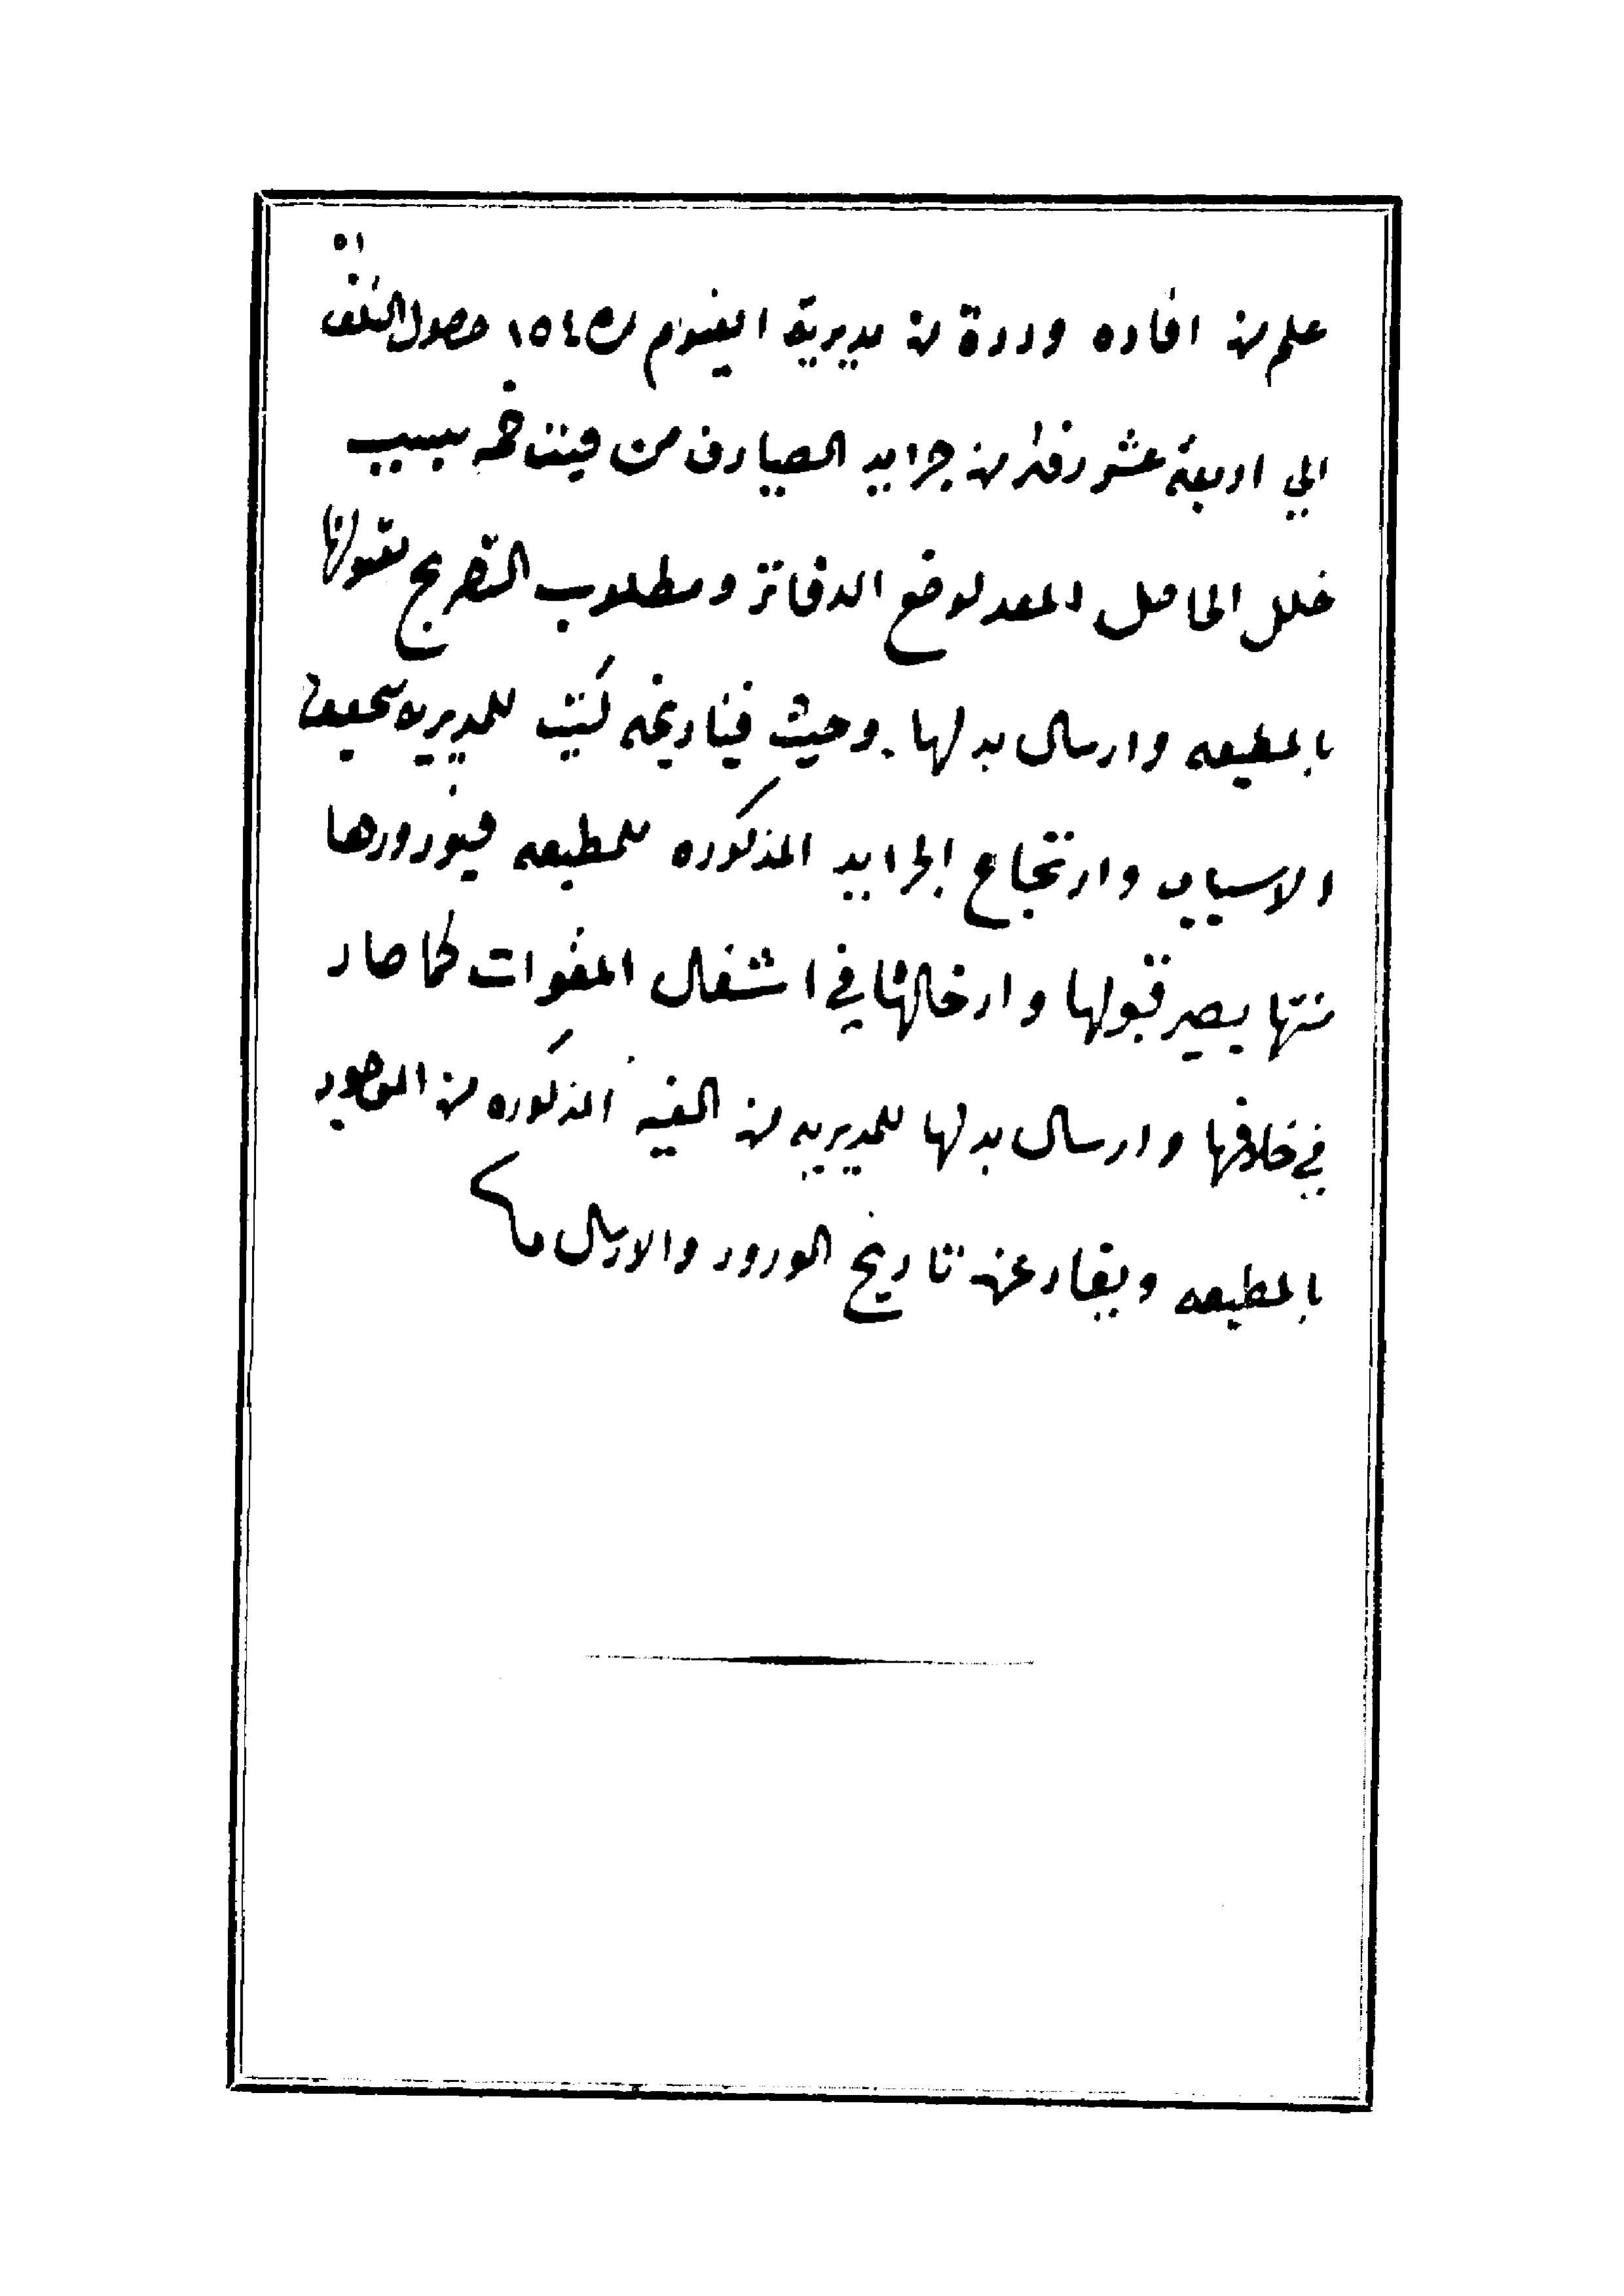 علم من افاده وردة من مديرية الفيوم ١٥٤ حصول التلف
الي اربعة عشر دفتر من جرايد الصيارف من فيئت بسبب
خلل الحاصل المعد لوضع الدفاتر ومطلوب التصريح بقبولها
بالمطبعه وارسال بدلها وحيث فيتاريخه كتبت للمديريه بتحقيق
الاسباب وارتجاع الجرايد المذكوره للمطبعه فبورودها
منها يصير قبولها وادخالها في اشغال المقوات كما صار
في خلافها وارسال بدلها للمديريه من الفيه المذكوره من الموجود
بالمطبعه ويفاد عن تاريخ الورود والارسال